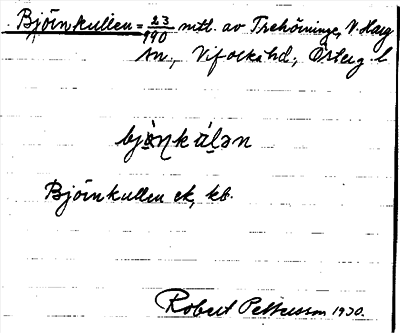 Björnkullen = 23/190 mitt. av Trehörninge, V. Harg
sn., Vifolka hd, Österg. l
bjö̀ṇkúlən
Björnkullen ek, kb.
Robert Pettersson 1930.